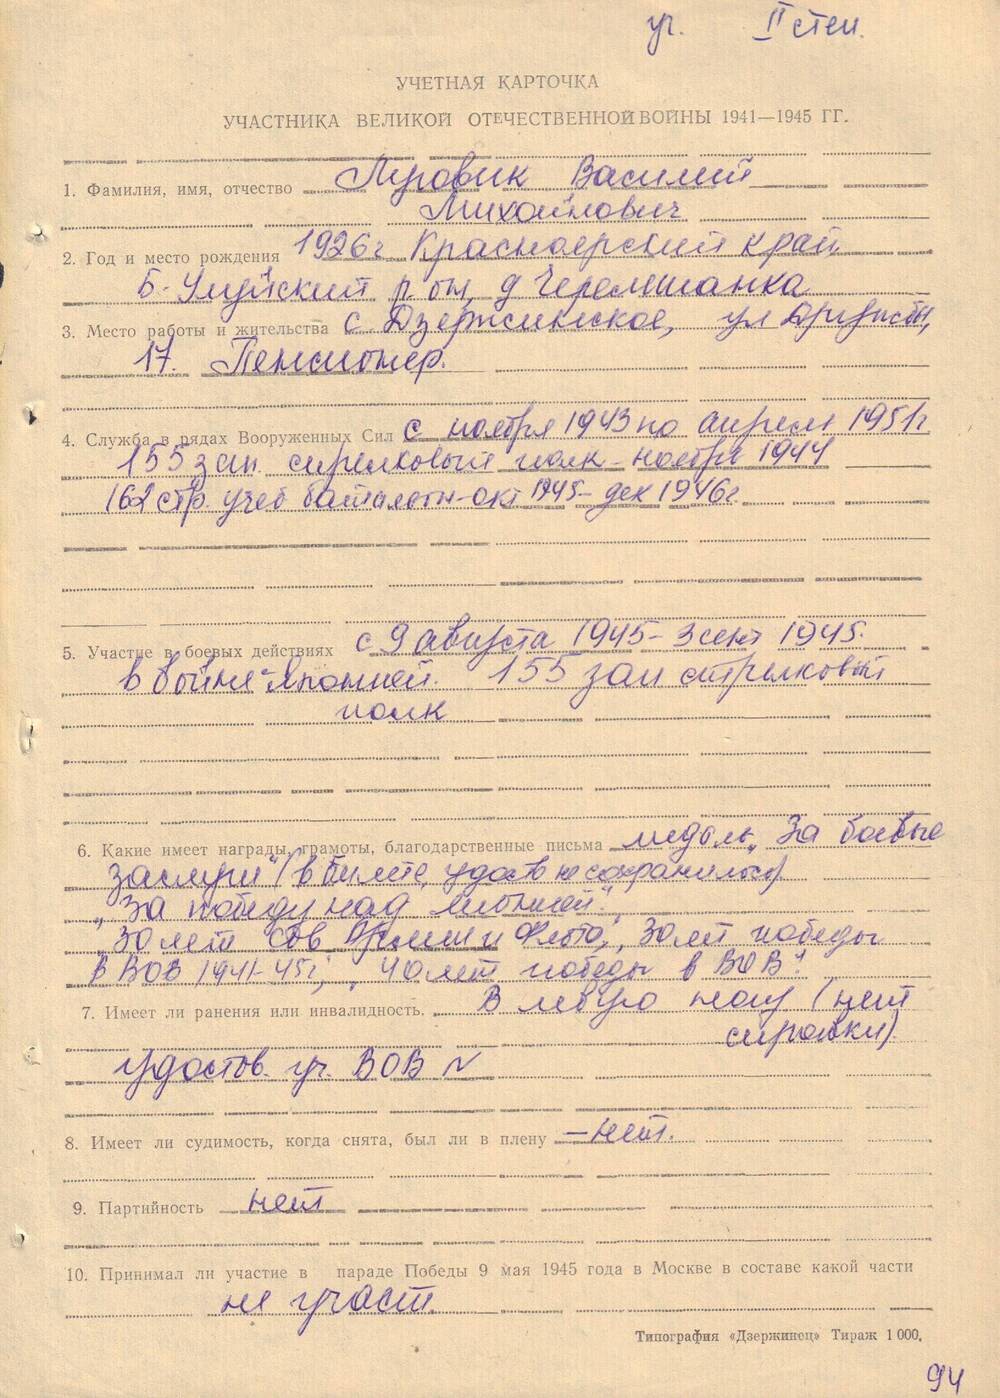 уч. II степ.
УЧЕТНАЯ КАРТОЧКА
УЧАСТНИКА ВЕЛИКОЙ ОТЕЧЕСТВЕННОЙ ВОЙНЫ 1941—1945 ГГ.
1. Фамилия, имя, отчество Василий
Михайлович
2. Год и место рождения 1926г Красноярский край
Б-Улуйский р-он, д Черемшанка
3. Место работы и жительства с Дзержинское, ул Дружбы,
17. Пенсионер.
4. Служба в рядах Вооруженных Сил с ноября 1943 по апрель 1951г
155 зап. стрелковый полк - ноября 1944
162 стр. учеб батальон - окт 1945 - дек 1946г.
5. Участие в боевых действиях с 9 августа 1945 - 3 сент 1945.
в войне с Японией. 155 зап стрелковый
полк
6. Какие имеет награды, грамоты, благодарственные письма медаль „За боевые
заслуги" (в билете, удост не сохранилось)
„За победу над Японией",
„30 лет Сов Армии и Флота", 30 лет победы
в ВОВ 1941-45г", „40 лет победы в ВОВ".
7. Имеет ли ранения или инвалидность. В левую ногу (нет
справки).
Удостов. уч. ВОВ N
8. Имеет ли судимость, когда снята, был ли в плену – нет.
9. Партийность нет
10. Принимал ли участие в параде Победы 9 мая 1945 года в Москве в составе какой части
не участ.
Типография «Дзержинец» Тираж 1 000.
94